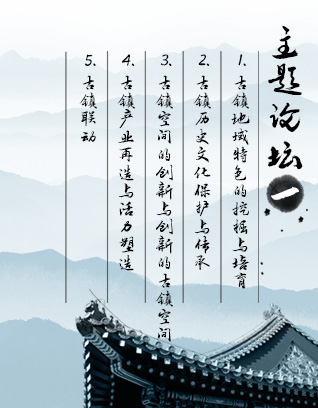 主题论坛一
1、古镇地域特色的挖掘与培育
2、古镇历史文化保护与传承
3、古镇空间的创新与创新的古镇空间
4、古镇产业再造与活力塑造
5、古镇联动